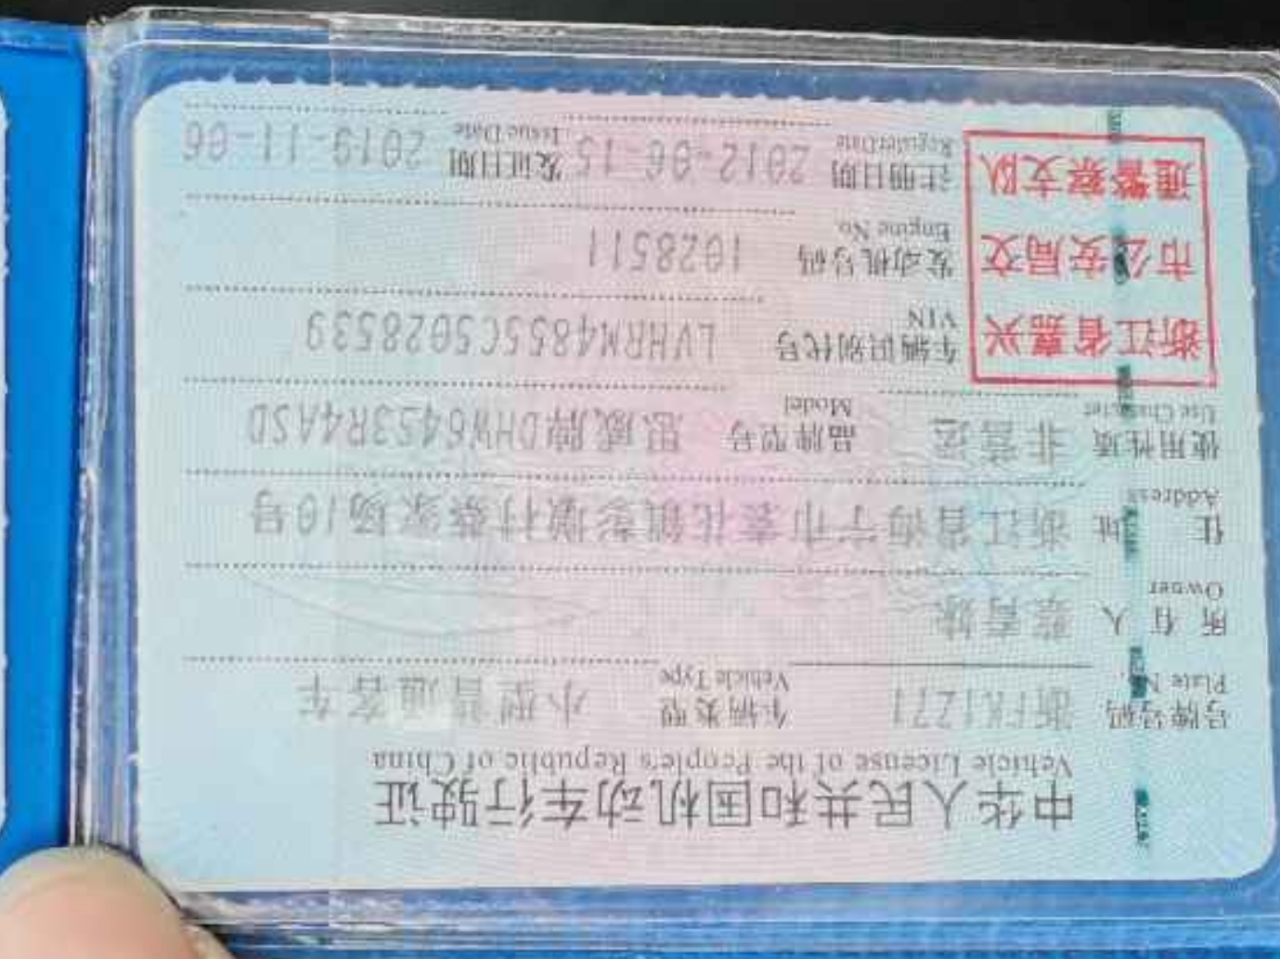 中华人民共和国机动车行驶证
Vehicle License of the People's Republic of China
号牌号码 浙FK1Z71 车辆类型 小型普通客车
Plate No. Vehicle Type
所有人 蔡育妹
Owner
住址 浙江省海宁市袁花镇彭墩村蔡家场10号
Address
使用性质 非营运 品牌型号 思威牌DHW6453R4ASD
Use Character Model
浙江省嘉兴
市公安局交
通警察支队
车辆识别代号 LVHRM4855C5028539
VIN
发动机号码 1028511
Engine No.
注册日期 2012-06-15 发证日期 2019-11-06
Register Date Issue Date